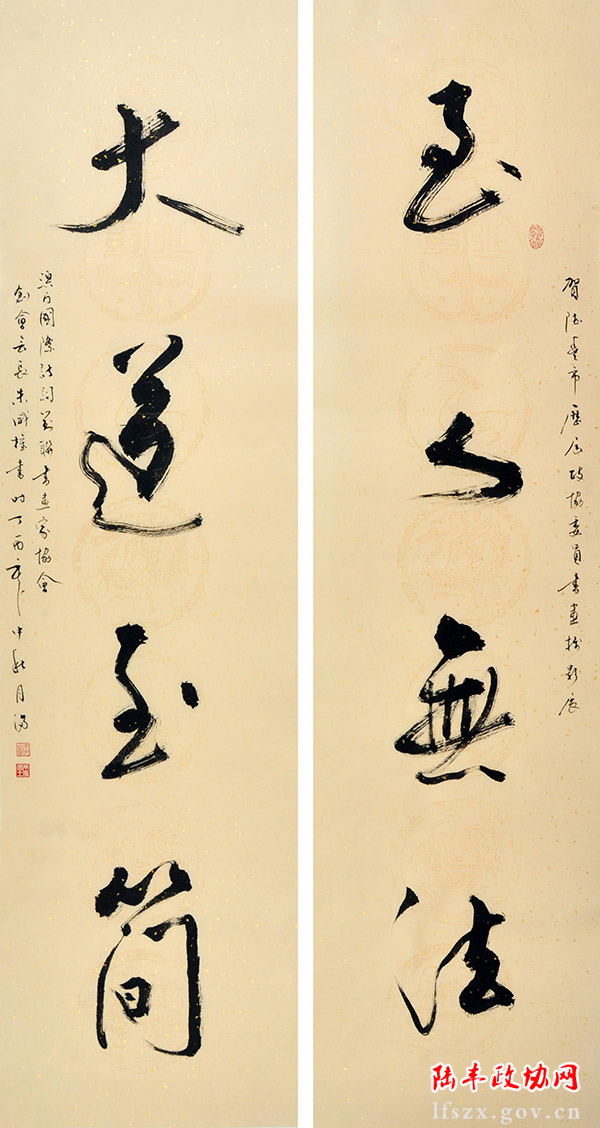 至人無法
賀陸豐市歷屆政協委員書畫攝影展
大道至簡
澳門國際詩詞聯書畫家協會
創會會長朱書時丁酉年中秋月滿
陆丰政协网
lfszx.gov.cn